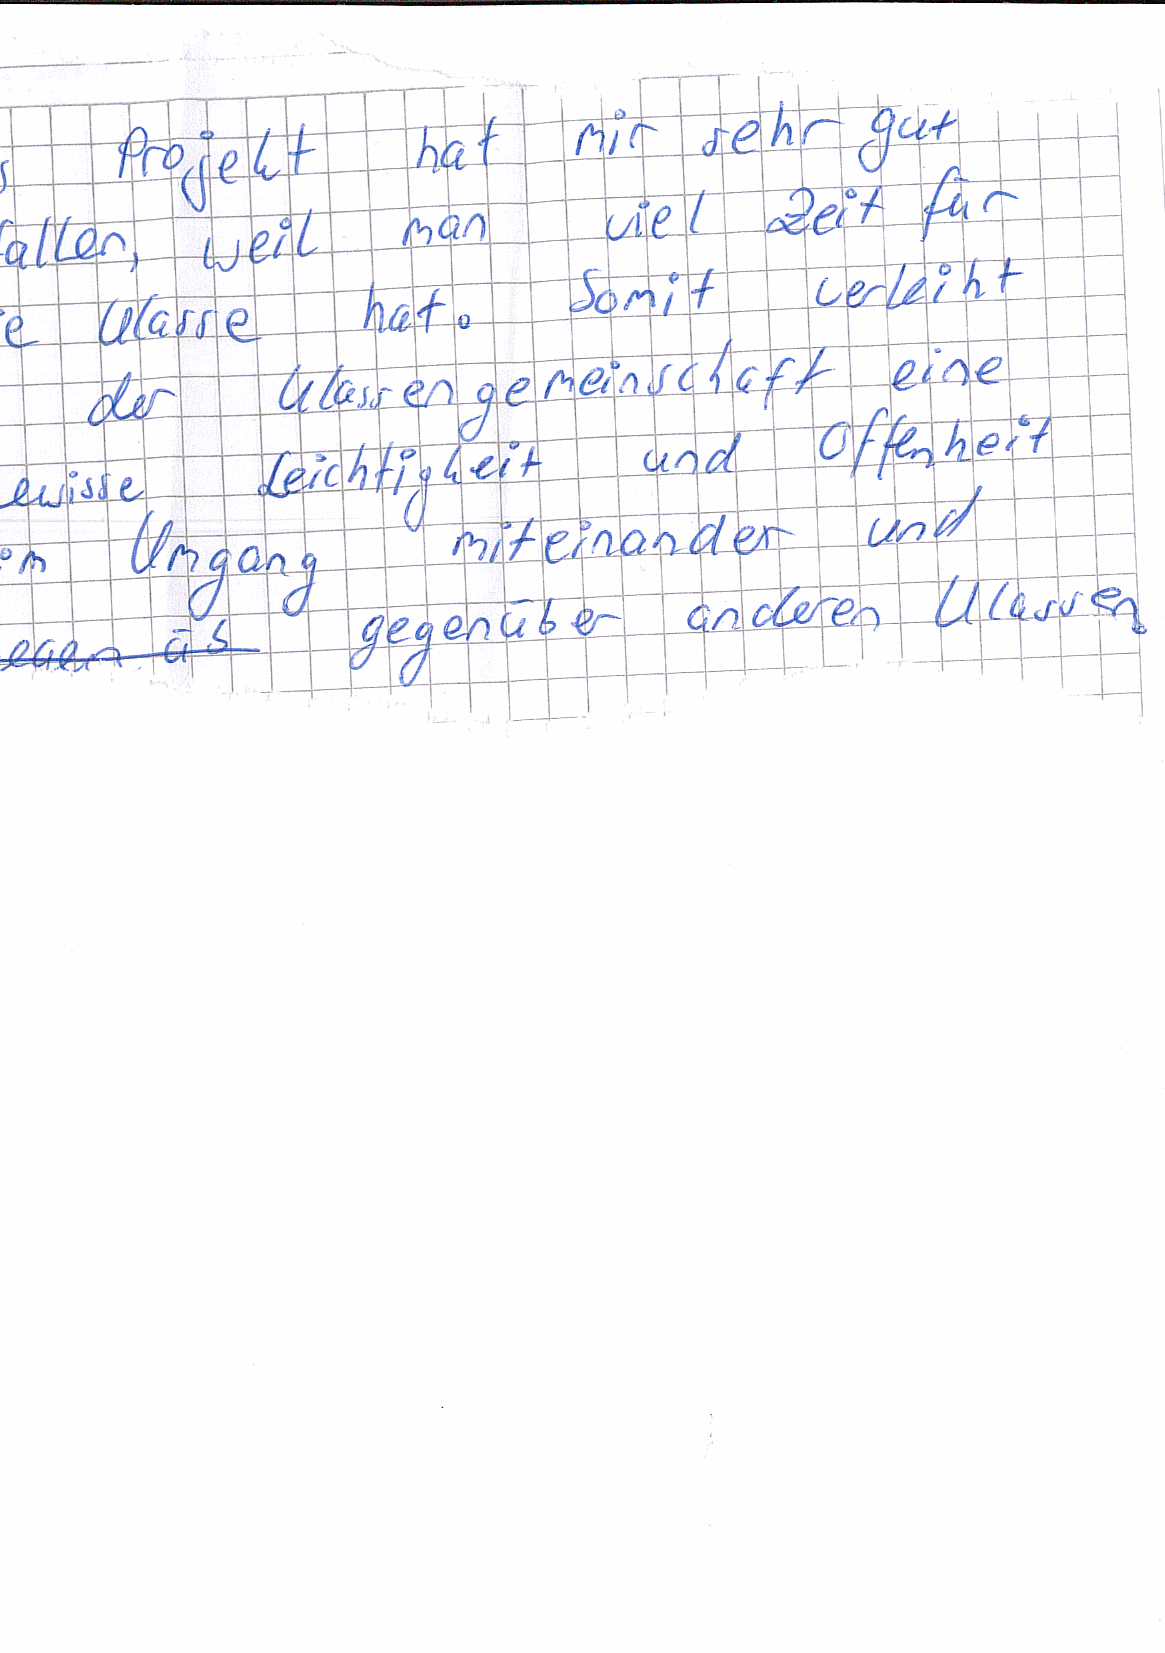 s Projekt hat mir sehr gut
fallen, weil man viel Zeit für
e Klasse hat. Somit verleiht
der Klassengemeinschaft eine
ewisse Leichtigkeit und Offenheit
im Umgang miteinander und
gegenüber anderen Klassen.